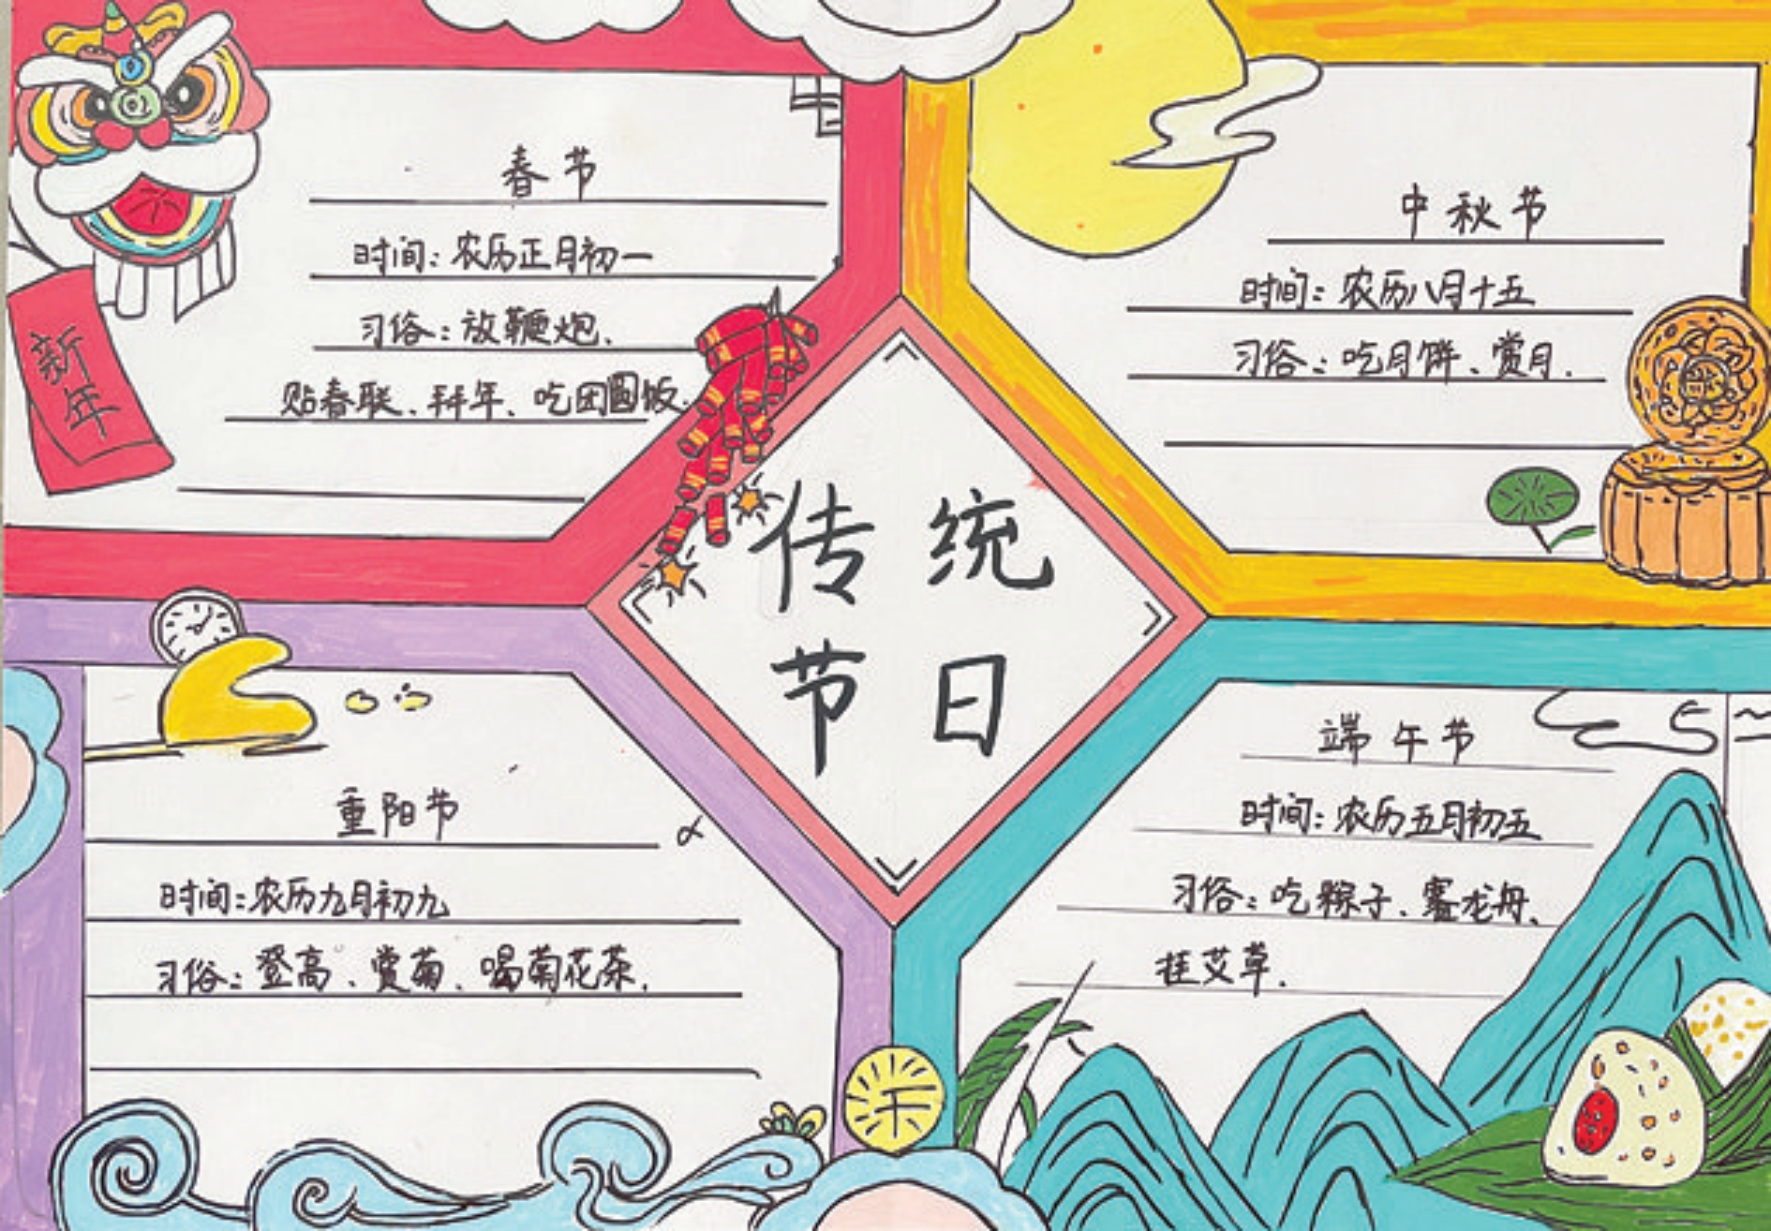 新年
春节
时间：农历正月初一
习俗：放鞭炮、
贴春联、拜年、吃团圆饭.
中秋节
时间：农历八月十五
习俗：吃月饼、赏月.
传统
节日
重阳节
时间：农历九月初九
习俗：登高、赏菊、喝菊花茶.
端午节
时间：农历五月初五
习俗：吃粽子、赛龙舟、
挂艾草.